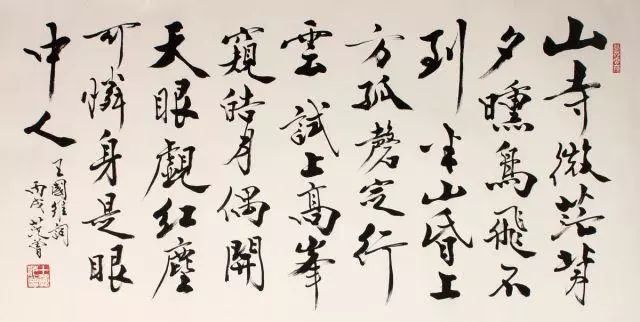 山寺微茫背
夕曛鳥飛不
到半山昏上
方孤磬定行
雲試上高峯
窺皓月偶開
天眼覷紅塵
可憐身是眼
中人
王國維詞
丙戌